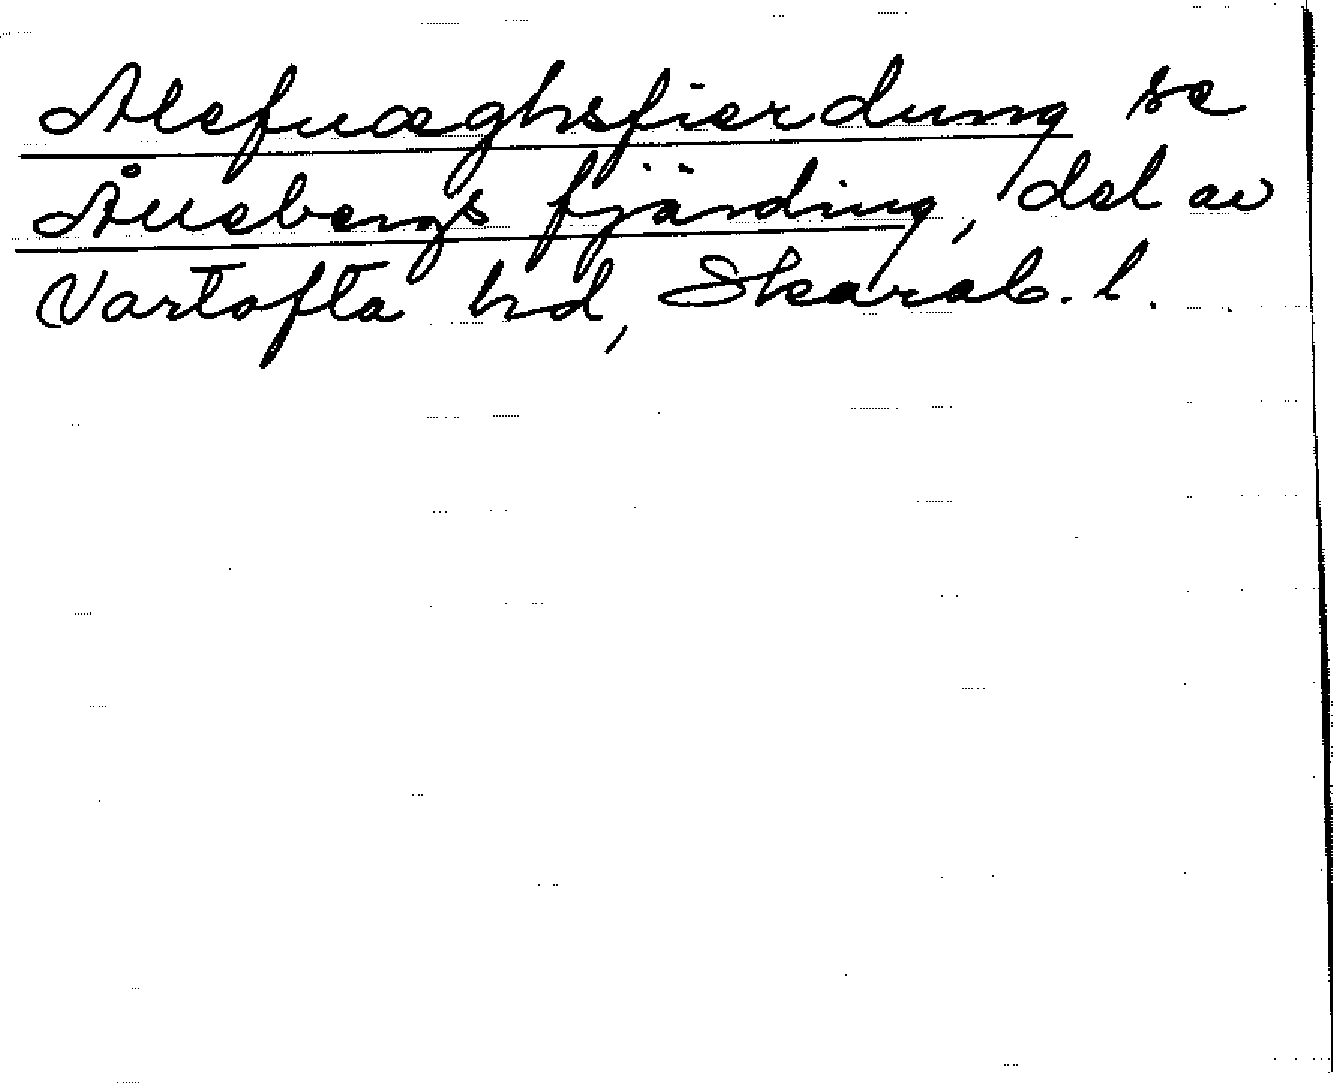 Alefuæghsfierdung se
Ållebergs fjärding, del av
Vartofta hd, Skarab. l.